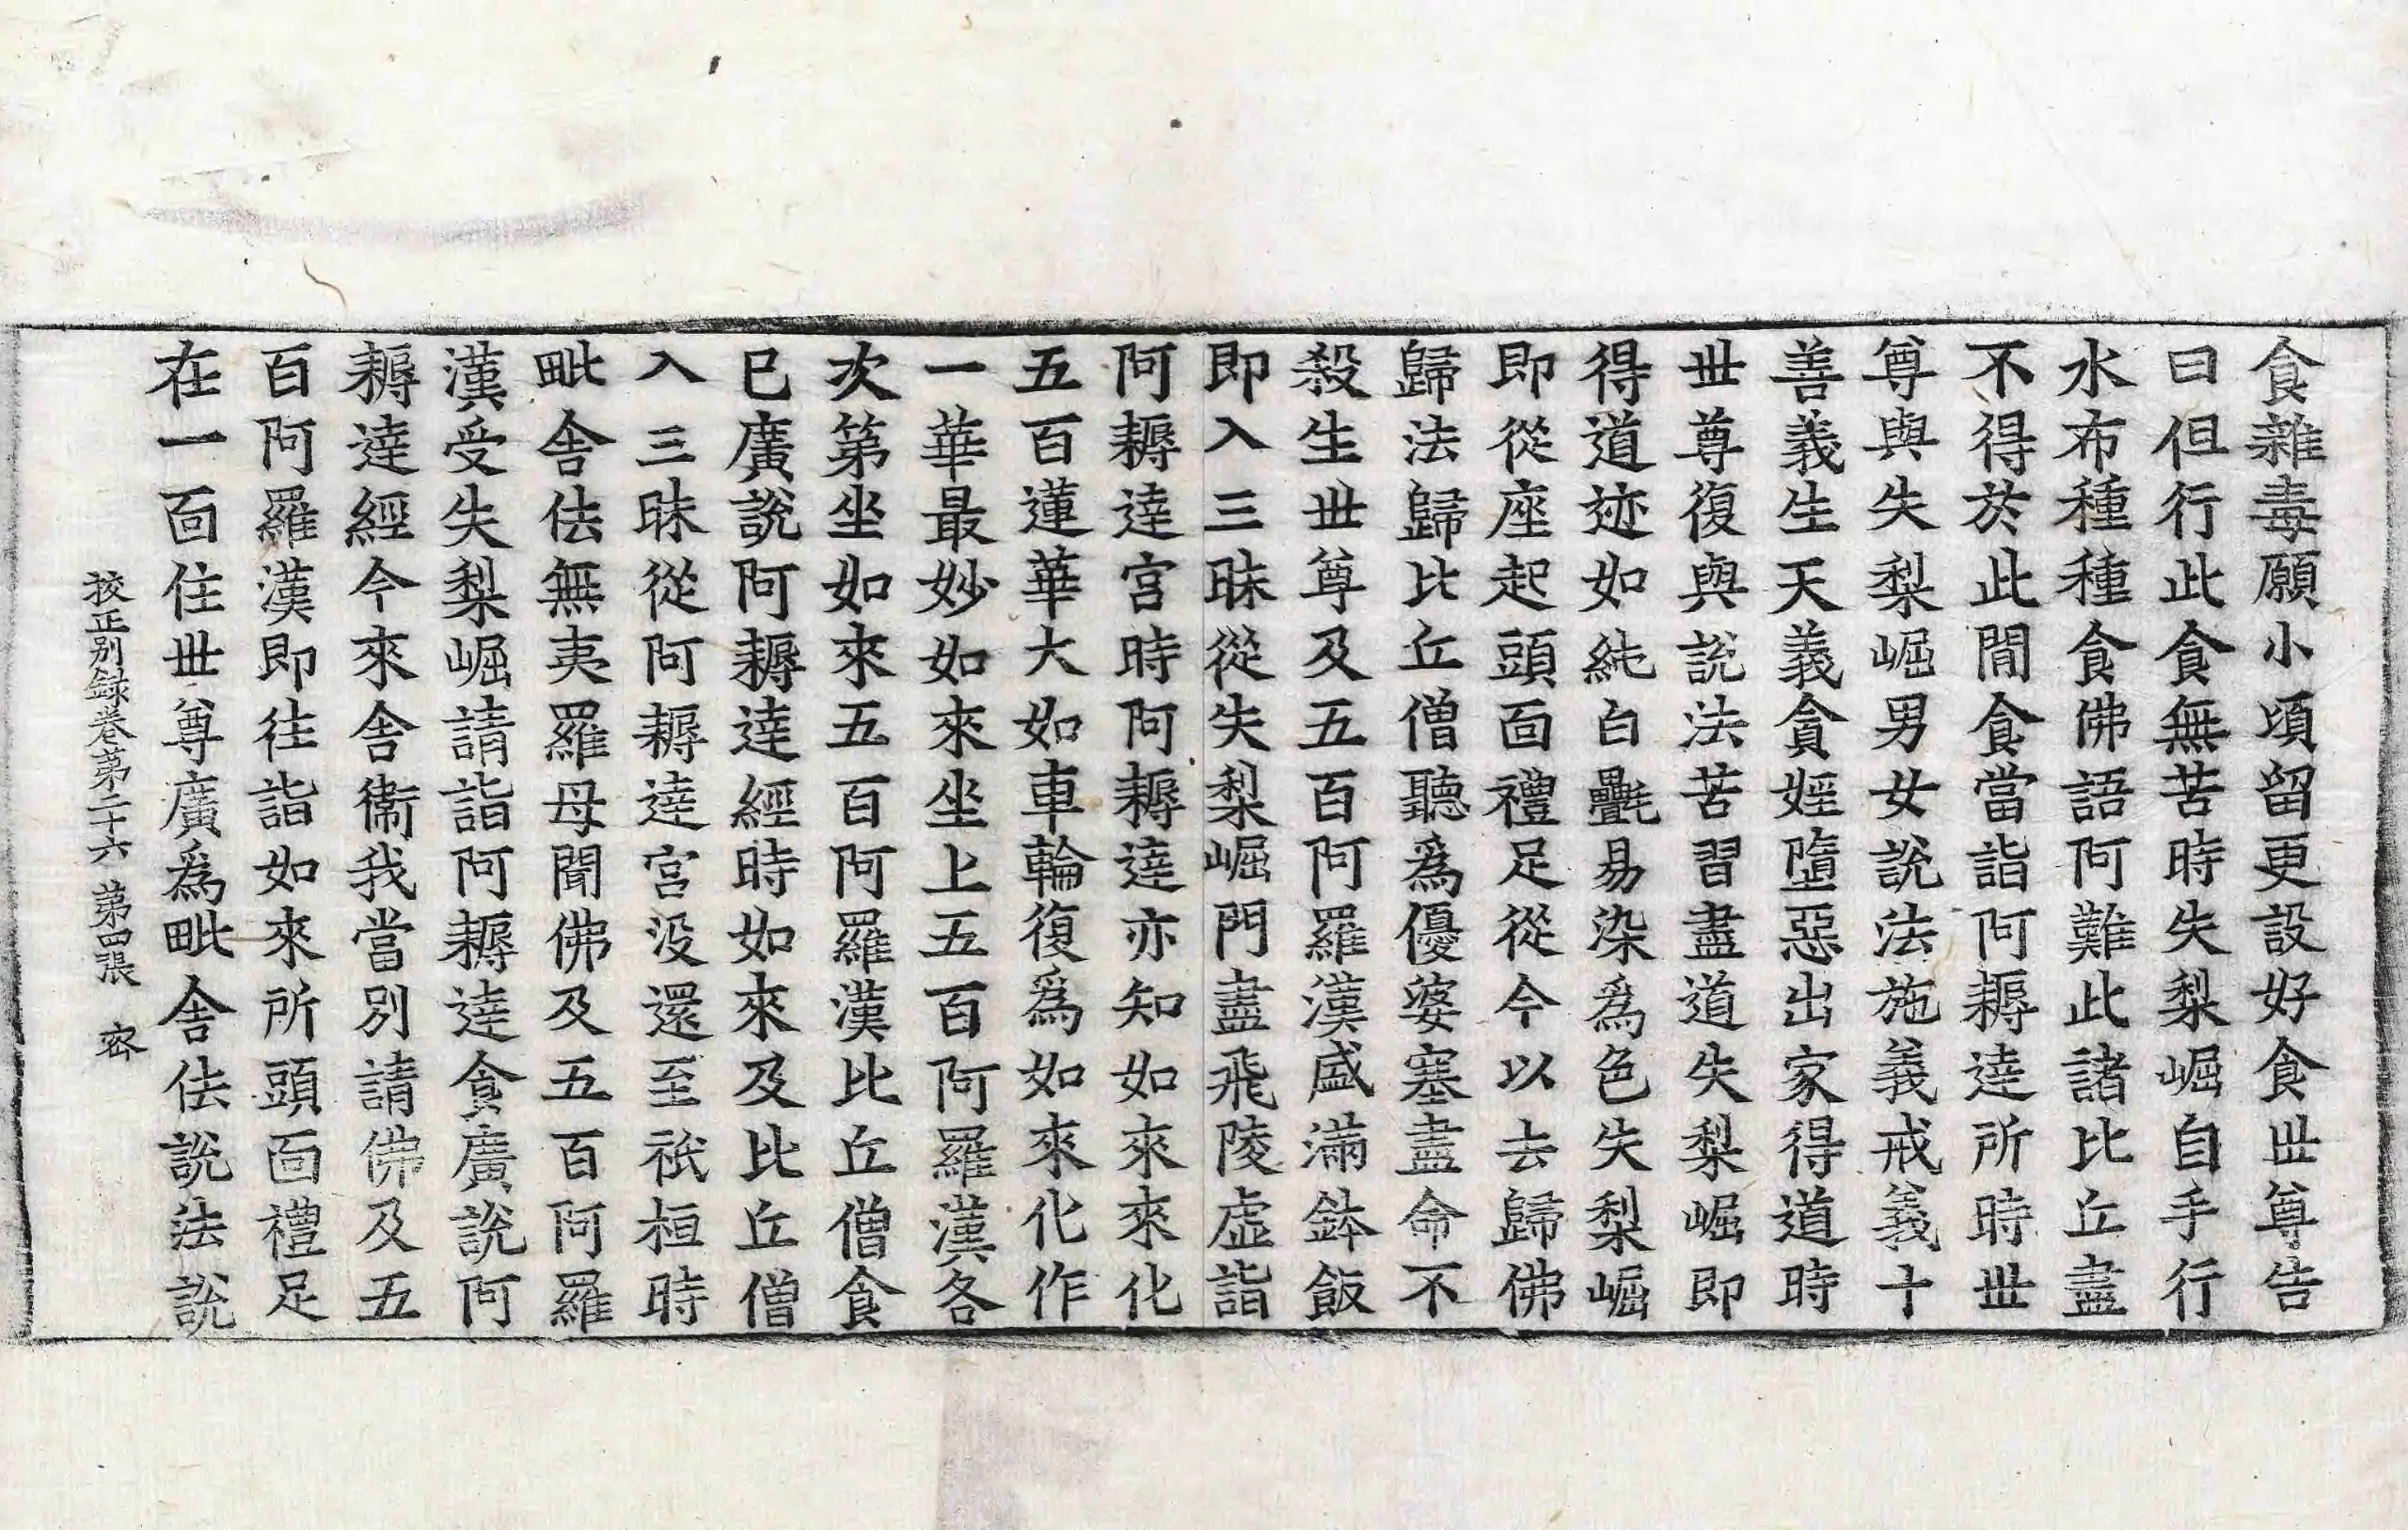 食雜毒願小頃留更設好食世尊告
曰但行此食無苦時失梨崛自手行
水布種種食佛語阿難此諸比丘盡
不得於此間食當詣阿耨達所時世
尊與失梨崛男女說法施義戒義十
善義生天義貪婬墮惡出家得道時
世尊復與說法苦習盡道失梨崛即
得道迹如純白㲲易染爲色失梨崛
即從座起頭面禮足從今以去歸佛
歸法歸比丘僧聽爲優婆塞盡命不
殺生世尊及五百阿羅漢盛滿鉢飯
即入三昧從失梨崛門盡飛陵虛詣
阿耨達宮時阿耨達亦知如來來化
五百蓮華大如車輪復爲如來化作
一華最妙如來坐上五百阿羅漢各
次第坐如來五百阿羅漢比丘僧食
已廣說阿耨達經時如來及比丘僧
入三昧從阿耨達宮没還至祇桓時
毗舍佉無夷羅母聞佛及五百阿羅
漢受失梨崛請詣阿耨達食廣說阿
耨達經今來舍衞我當別請佛及五
百阿羅漢即往詣如來所頭面禮足
在一面住世尊廣爲毗舍佉說法說
挍正別録卷苐二十六 苐四張 宻